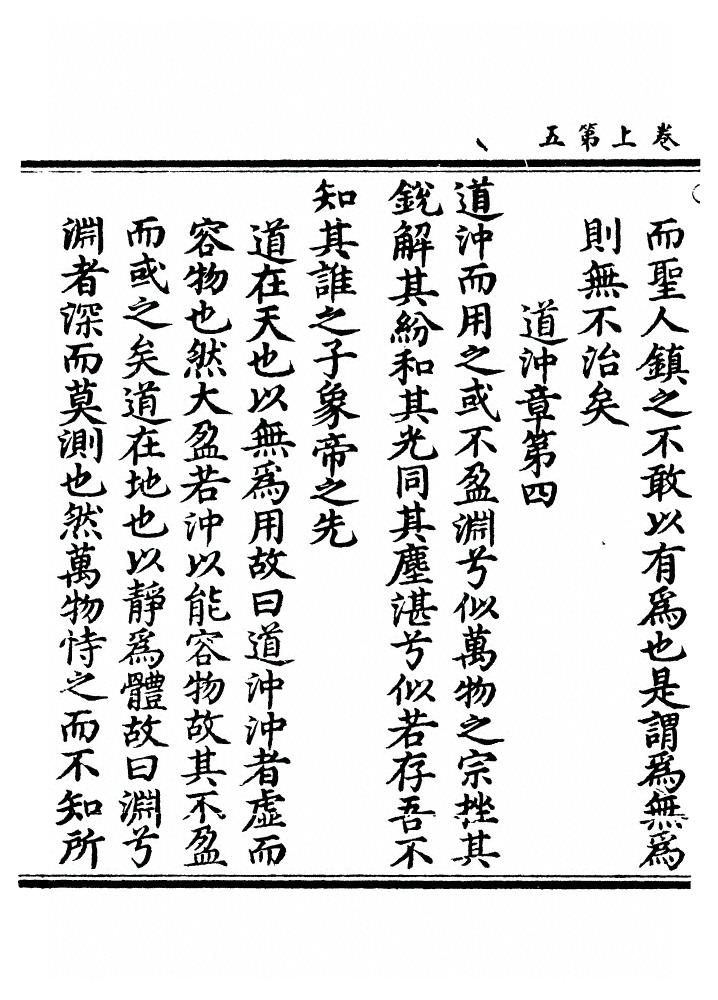 卷上第五
而聖人鎮之不敢以有爲也是謂爲無爲
則無不治矣
道沖章第四
道沖而用之或不盈淵兮似萬物之宗挫其
銳解其紛和其光同其塵湛兮似若存吾不
知其誰之子象帝之先
道在天也以無爲用故曰道沖沖者虛而
容物也然大盈若沖以能容物故其不盈
而或之矣道在地也以靜爲體故曰淵兮
淵者深而莫測也然萬物恃之而不知所